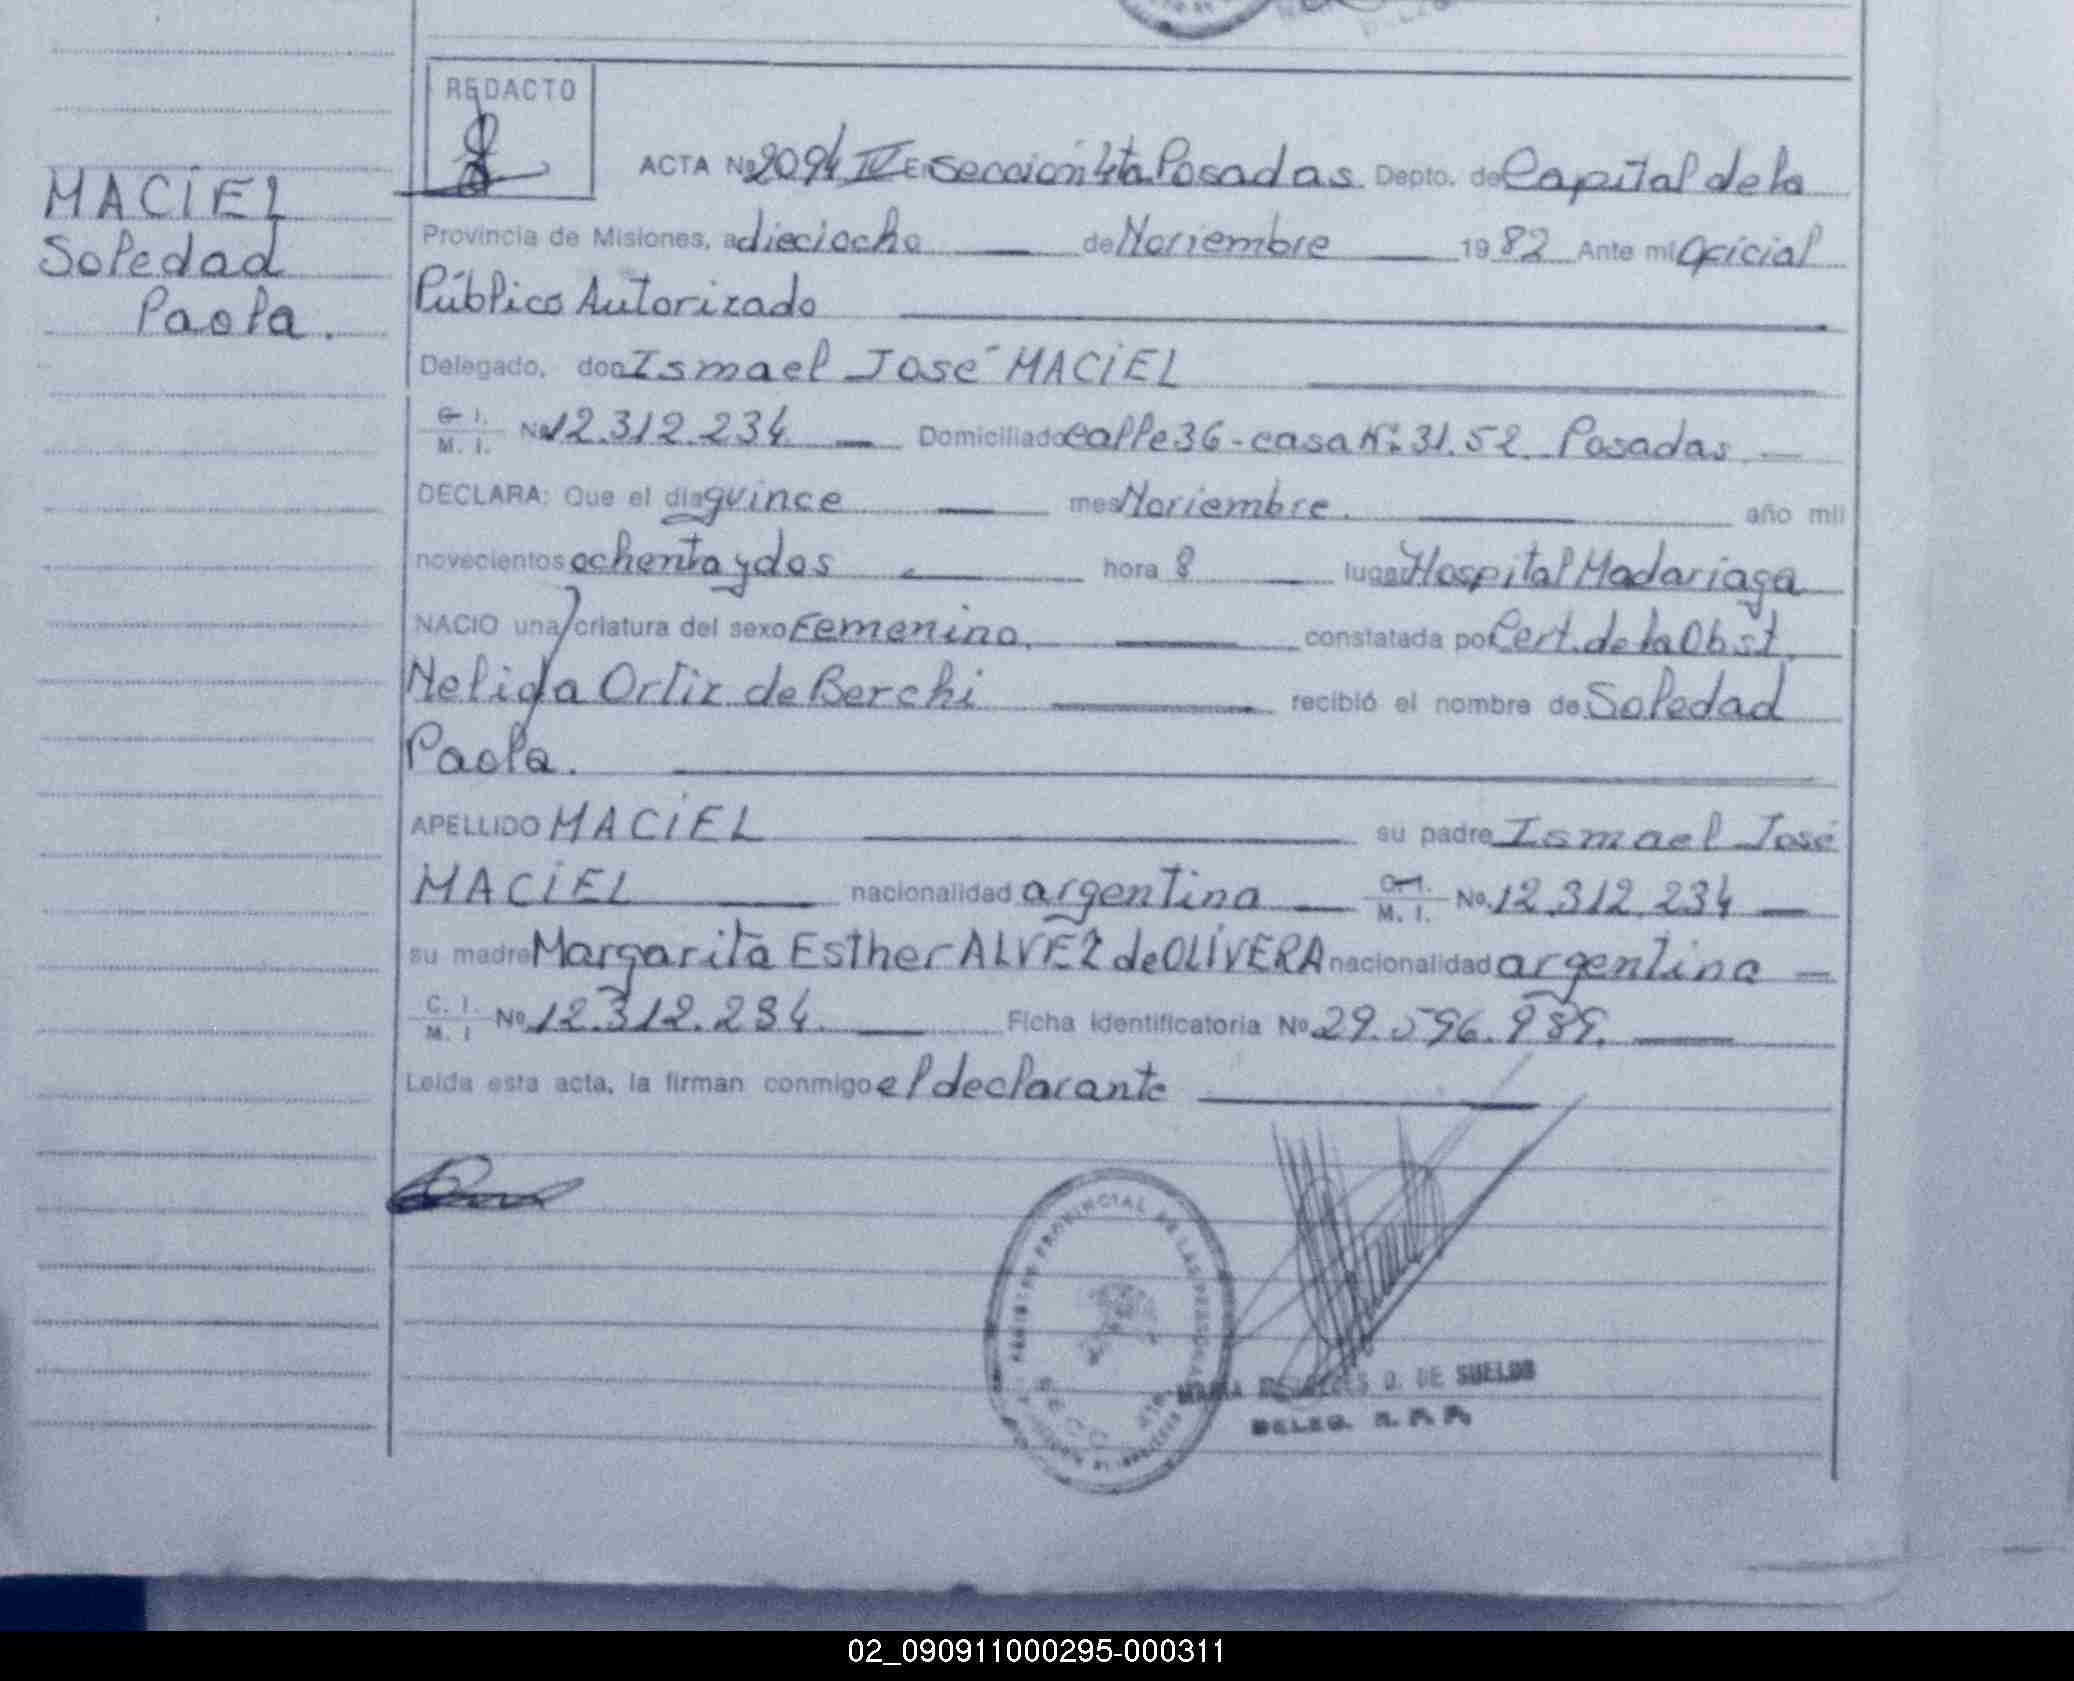 REDACTO
ACTA No 2094 IV En sección 4ta Posadas Depto. de Capital de la
MACIEL
Soledad
Paola.
Provincia de Misiones, a dieciocho de Noviembre 1982 Ante mi Oficial
Público Autorizado
Delegado, don Ismael José MACIEL
C. I.
M. I. No 12.312.234 Domiciliado calle 36 - casa Nº 31.52. Posadas
DECLARA: Que el día quince mes Noviembre. año mil
novecientos ochenta y dos hora 8 lugar Hospital Madariaga
NACIO una criatura del sexo Femenino. constatada por Cert. de la Obst.
Nelida Ortiz de Berchi recibió el nombre de Soledad
Paola.
APELLIDO MACIEL su padre Ismael José
MACIEL nacionalidad argentina C. I. M. I. No. 12.312.234
su madre Margarita Esther ALVEZ de OLIVERA nacionalidad argentina
C. I.
M. I No 12.312.294. Ficha Identificatoria No 29.596.989.
Leída esta acta, la firman conmigo el declarante
REGISTRO PROVINCIAL DE LAS PERSONAS
DE SUELDO
DELEG. R. P. P.
02_090911000295-000311